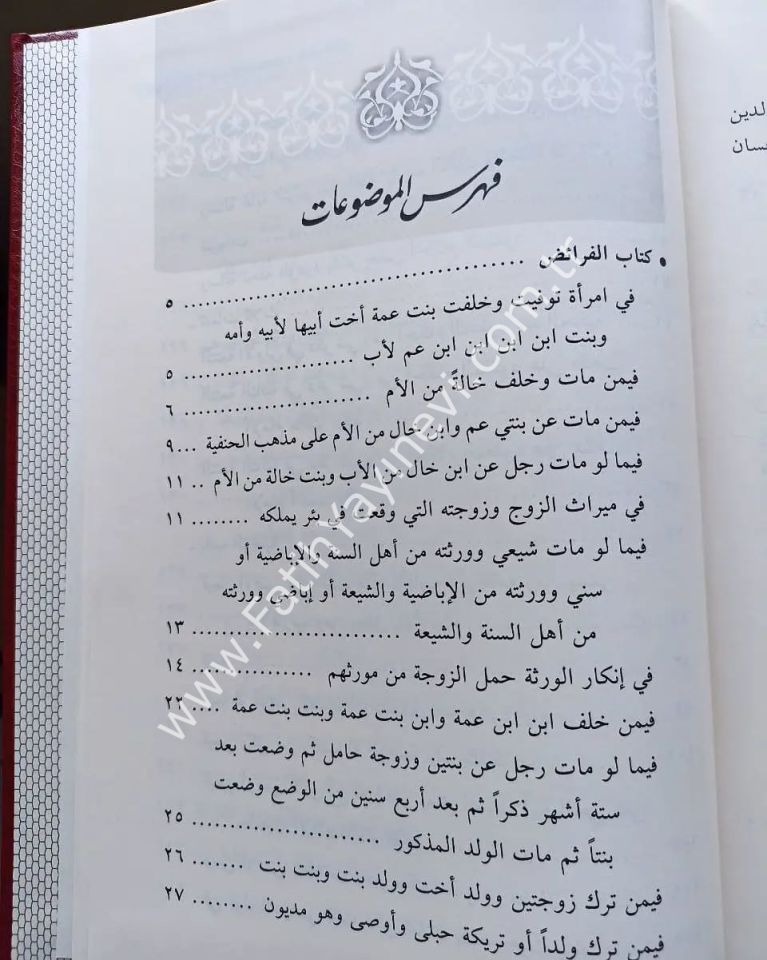 فهرس الموضوعات
• كتاب الفرائض ........................................ ٥
في امرأة توفيت وخلفت بنت عمة أخت أبيها لأبيه وأمه
وبنت ابن ابن ابن ابن عم لأب .................... ٥
فيمن مات وخلف خالةً من الأم ........................ ٦
فيمن مات عن بنتي عم وابن خال من الأم على مذهب الحنفية ... ٩
فيما لو مات رجل عن ابن خال من الأب وبنت خالة من الأم .. ١١
في ميراث الزوج وزوجته التي وقعت في بئر يملكه ........ ١١
فيما لو مات شيعي وورثته من أهل السنة والإباضية أو
سني وورثته من الإباضية والشيعة أو إباضي وورثته
من أهل السنة والشيعة .......................... ١٣
في إنكار الورثة حمل الزوجة من مورثهم ................ ١٤
فيمن خلف ابن ابن عمة وابن بنت عمة وبنت بنت عمة .... ٢٣
فيما لو مات رجل عن بنتين وزوجة حامل ثم وضعت بعد
ستة أشهر ذكراً ثم بعد أربع سنين من الوضع وضعت
بنتاً ثم مات الولد المذكور ........................ ٢٥
فيمن ترك زوجتين وولد أخت وولد بنت وبنت بنت ....... ٢٦
فيمن ترك ولداً أو تريكة حبلى وأوصى وهو مديون ........ ٢٧
لدين
سان
www.FatihYayinevi.com.tr